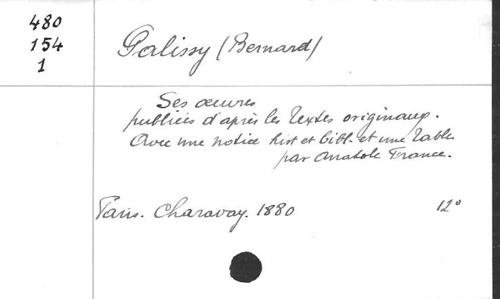 480
154
1
Palissy (Bernard)
Ses œuvres
publiées d'après les textes originaux.
Avec une notice hist et bibl. et une table
par Anatole France.
Paris. Charavay. 1880 12°